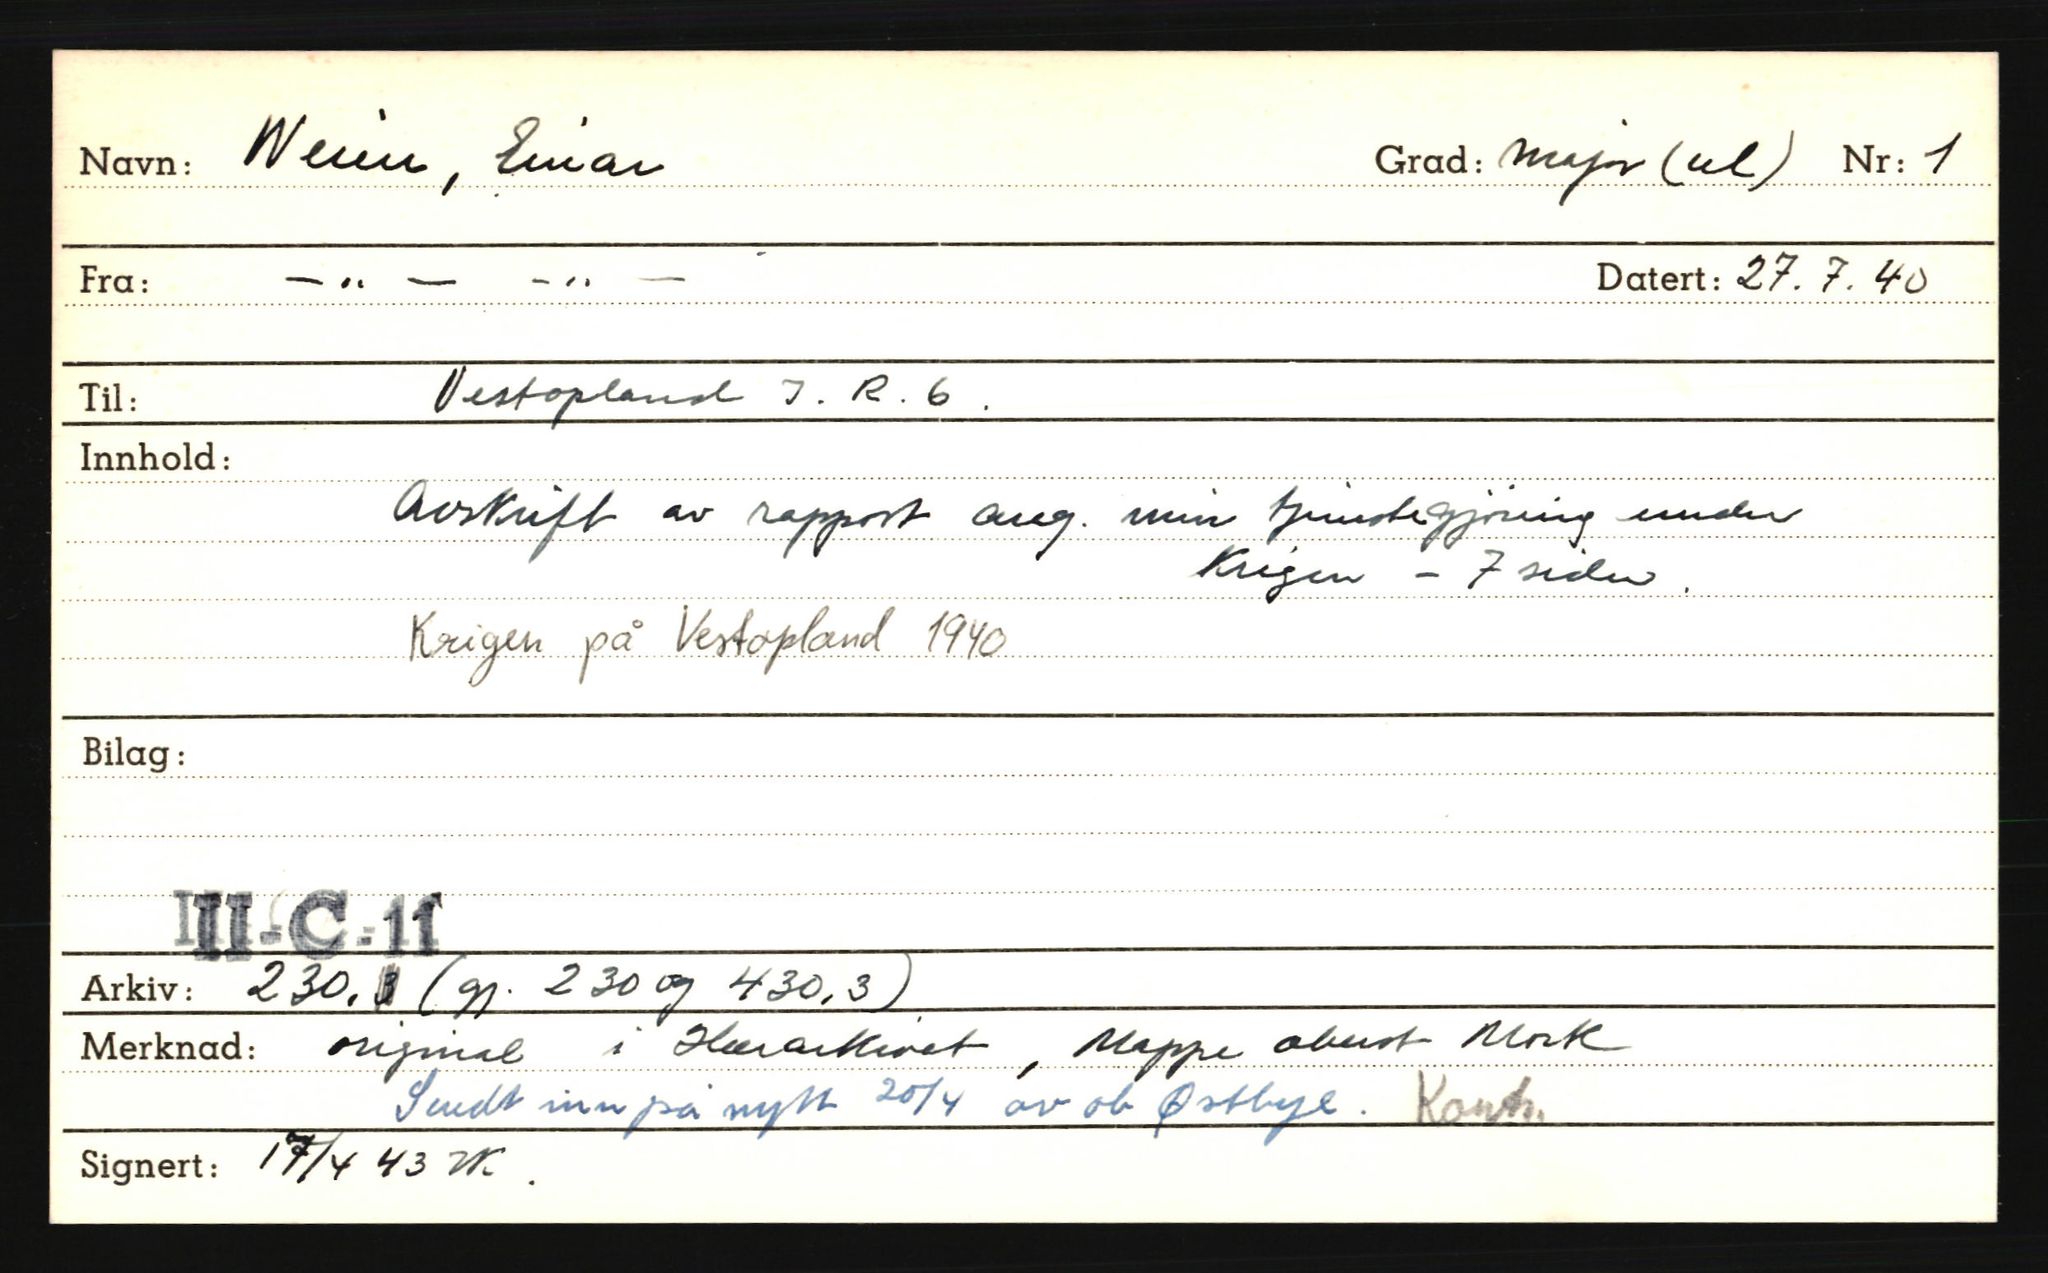 Navn: Weien, Einar Grad: Major (ul) Nr: 1
Fra: -"- -"- Datert: 27.7.40
Til: Vestopland I.R.6.
Innhold:
Avskrift av rapport ang. min tjenestegjöring under
Krigen - 7 sider.
Krigen på Vestopland 1940
Bilag:
III-C-11
Arkiv: 230. (gp. 230 og 430.3)
Merknad: original i Hærarkivet, Mappe oberst Mork
Sendt inn på nytt 20/4 av ob Østbye. Kontr.
Signert: 17/4 43